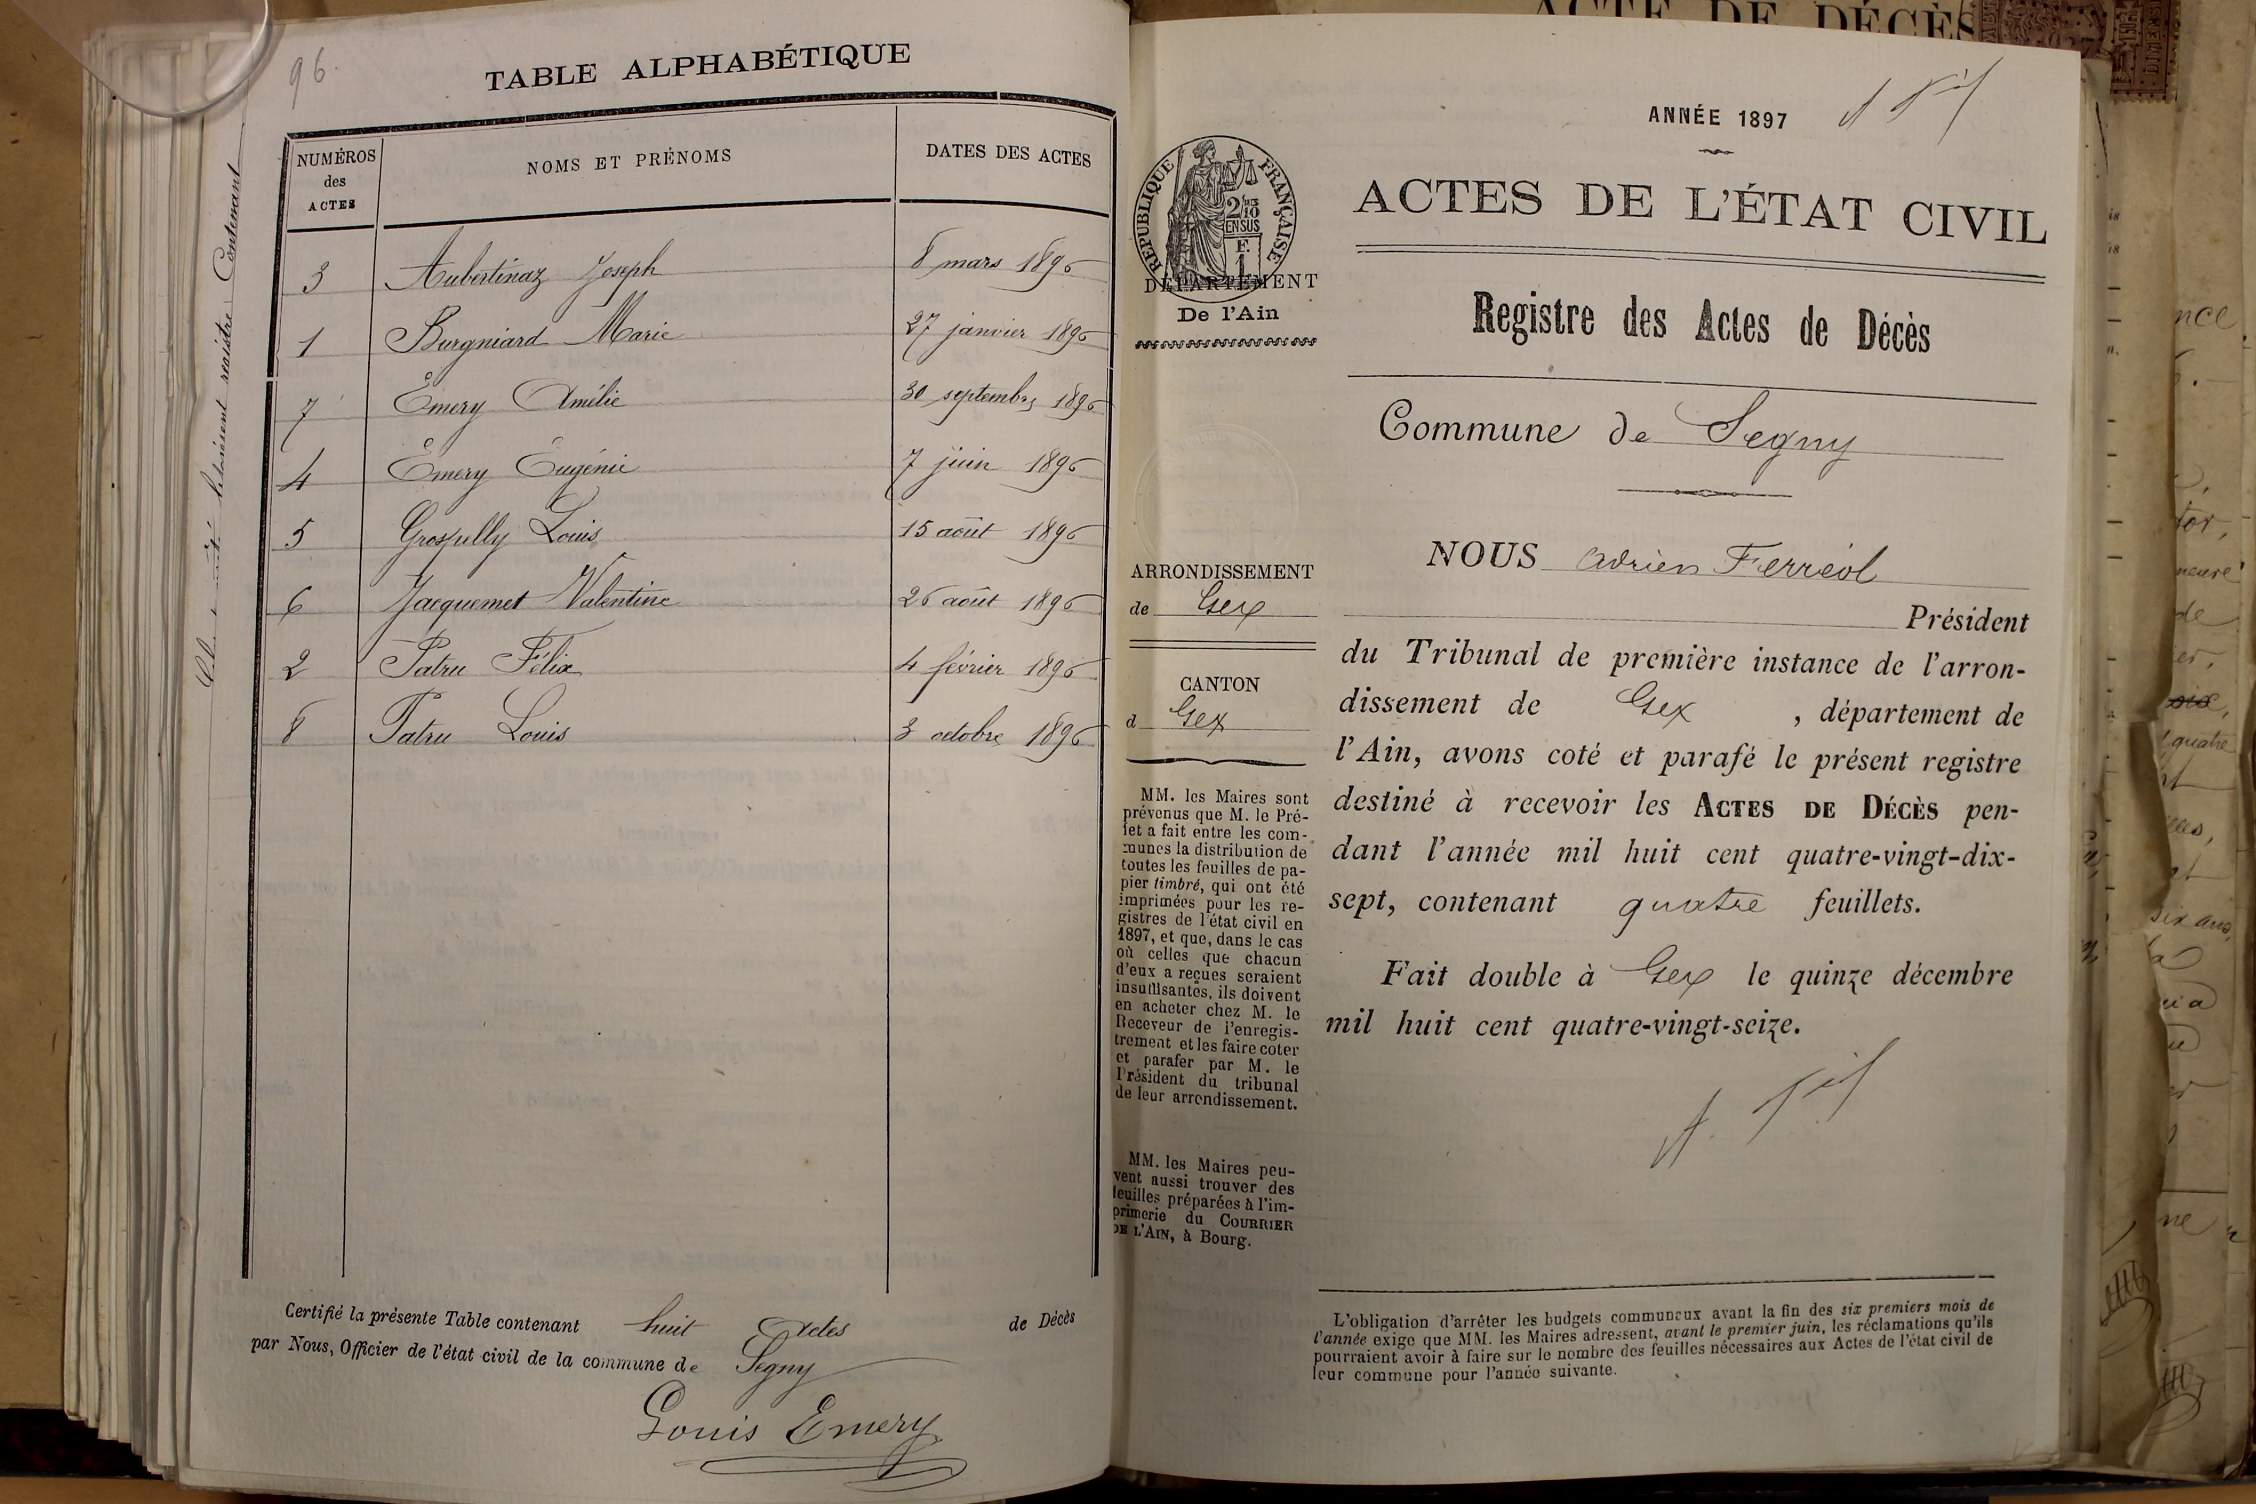 96.
TABLE ALPHABÉTIQUE
NUMÉROS des ACTES
NOMS ET PRÉNOMS
DATES DES ACTES
3 Aubertinaz Joseph 8 mars 1896
1 Burgniard Marie 27 janvier 1896
7 Emery Amélie 30 septembre 1896
4 Emery Eugénie 7 juin 1896
5 Grospelly Louis 15 août 1896
6 Jacquemet Valentine 26 août 1896
2 Patru Félix 4 février 1896
8 Patru Louis 3 octobre 1896
Certifié la présente Table contenant huit Actes de Décès
par Nous, Officier de l'état civil de la commune de Segny
Louis Emery
présent registre Contenant
ACTE DE DÉCÈS
ANNÉE 1897
RÉPUBLIQUE FRANÇAISE
2/10
EN SUS
F.
1
DÉPARTEMENT
De l'Ain
ACTES DE L'ÉTAT CIVIL
Registre des Actes de Décès
Commune de Segny
ARRONDISSEMENT
de Gex
CANTON
d Gex
MM. les Maires sont
prévenus que M. le Pré-
fet a fait entre les com-
munes la distribution de
toutes les feuilles de pa-
pier timbré, qui ont été
imprimées pour les re-
gistres de l'état civil en
1897, et que, dans le cas
où celles que chacun
d'eux a reçues seraient
insuffisantes, ils doivent
en acheter chez M. le
Receveur de l'enregis-
trement et les faire coter
et parafer par M. le
Président du tribunal
de leur arrondissement.
MM. les Maires peu-
vent aussi trouver des
feuilles préparées à l'im-
primerie du COURRIER
DE L'AIN, à Bourg.
NOUS Adrien Ferréol
Président
du Tribunal de première instance de l'arron-
dissement de Gex, département de
l'Ain, avons coté et parafé le présent registre
destiné à recevoir les ACTES DE DÉCÈS pen-
dant l'année mil huit cent quatre-vingt-dix-
sept, contenant quatre feuillets.
Fait double à Gex le quinze décembre
mil huit cent quatre-vingt-seize.
L'obligation d'arrêter les budgets communaux avant la fin des six premiers mois de
l'année exige que MM. les Maires adressent, avant le premier juin, les réclamations qu'ils
pourraient avoir à faire sur le nombre des feuilles nécessaires aux Actes de l'état civil de
leur commune pour l'année suivante.